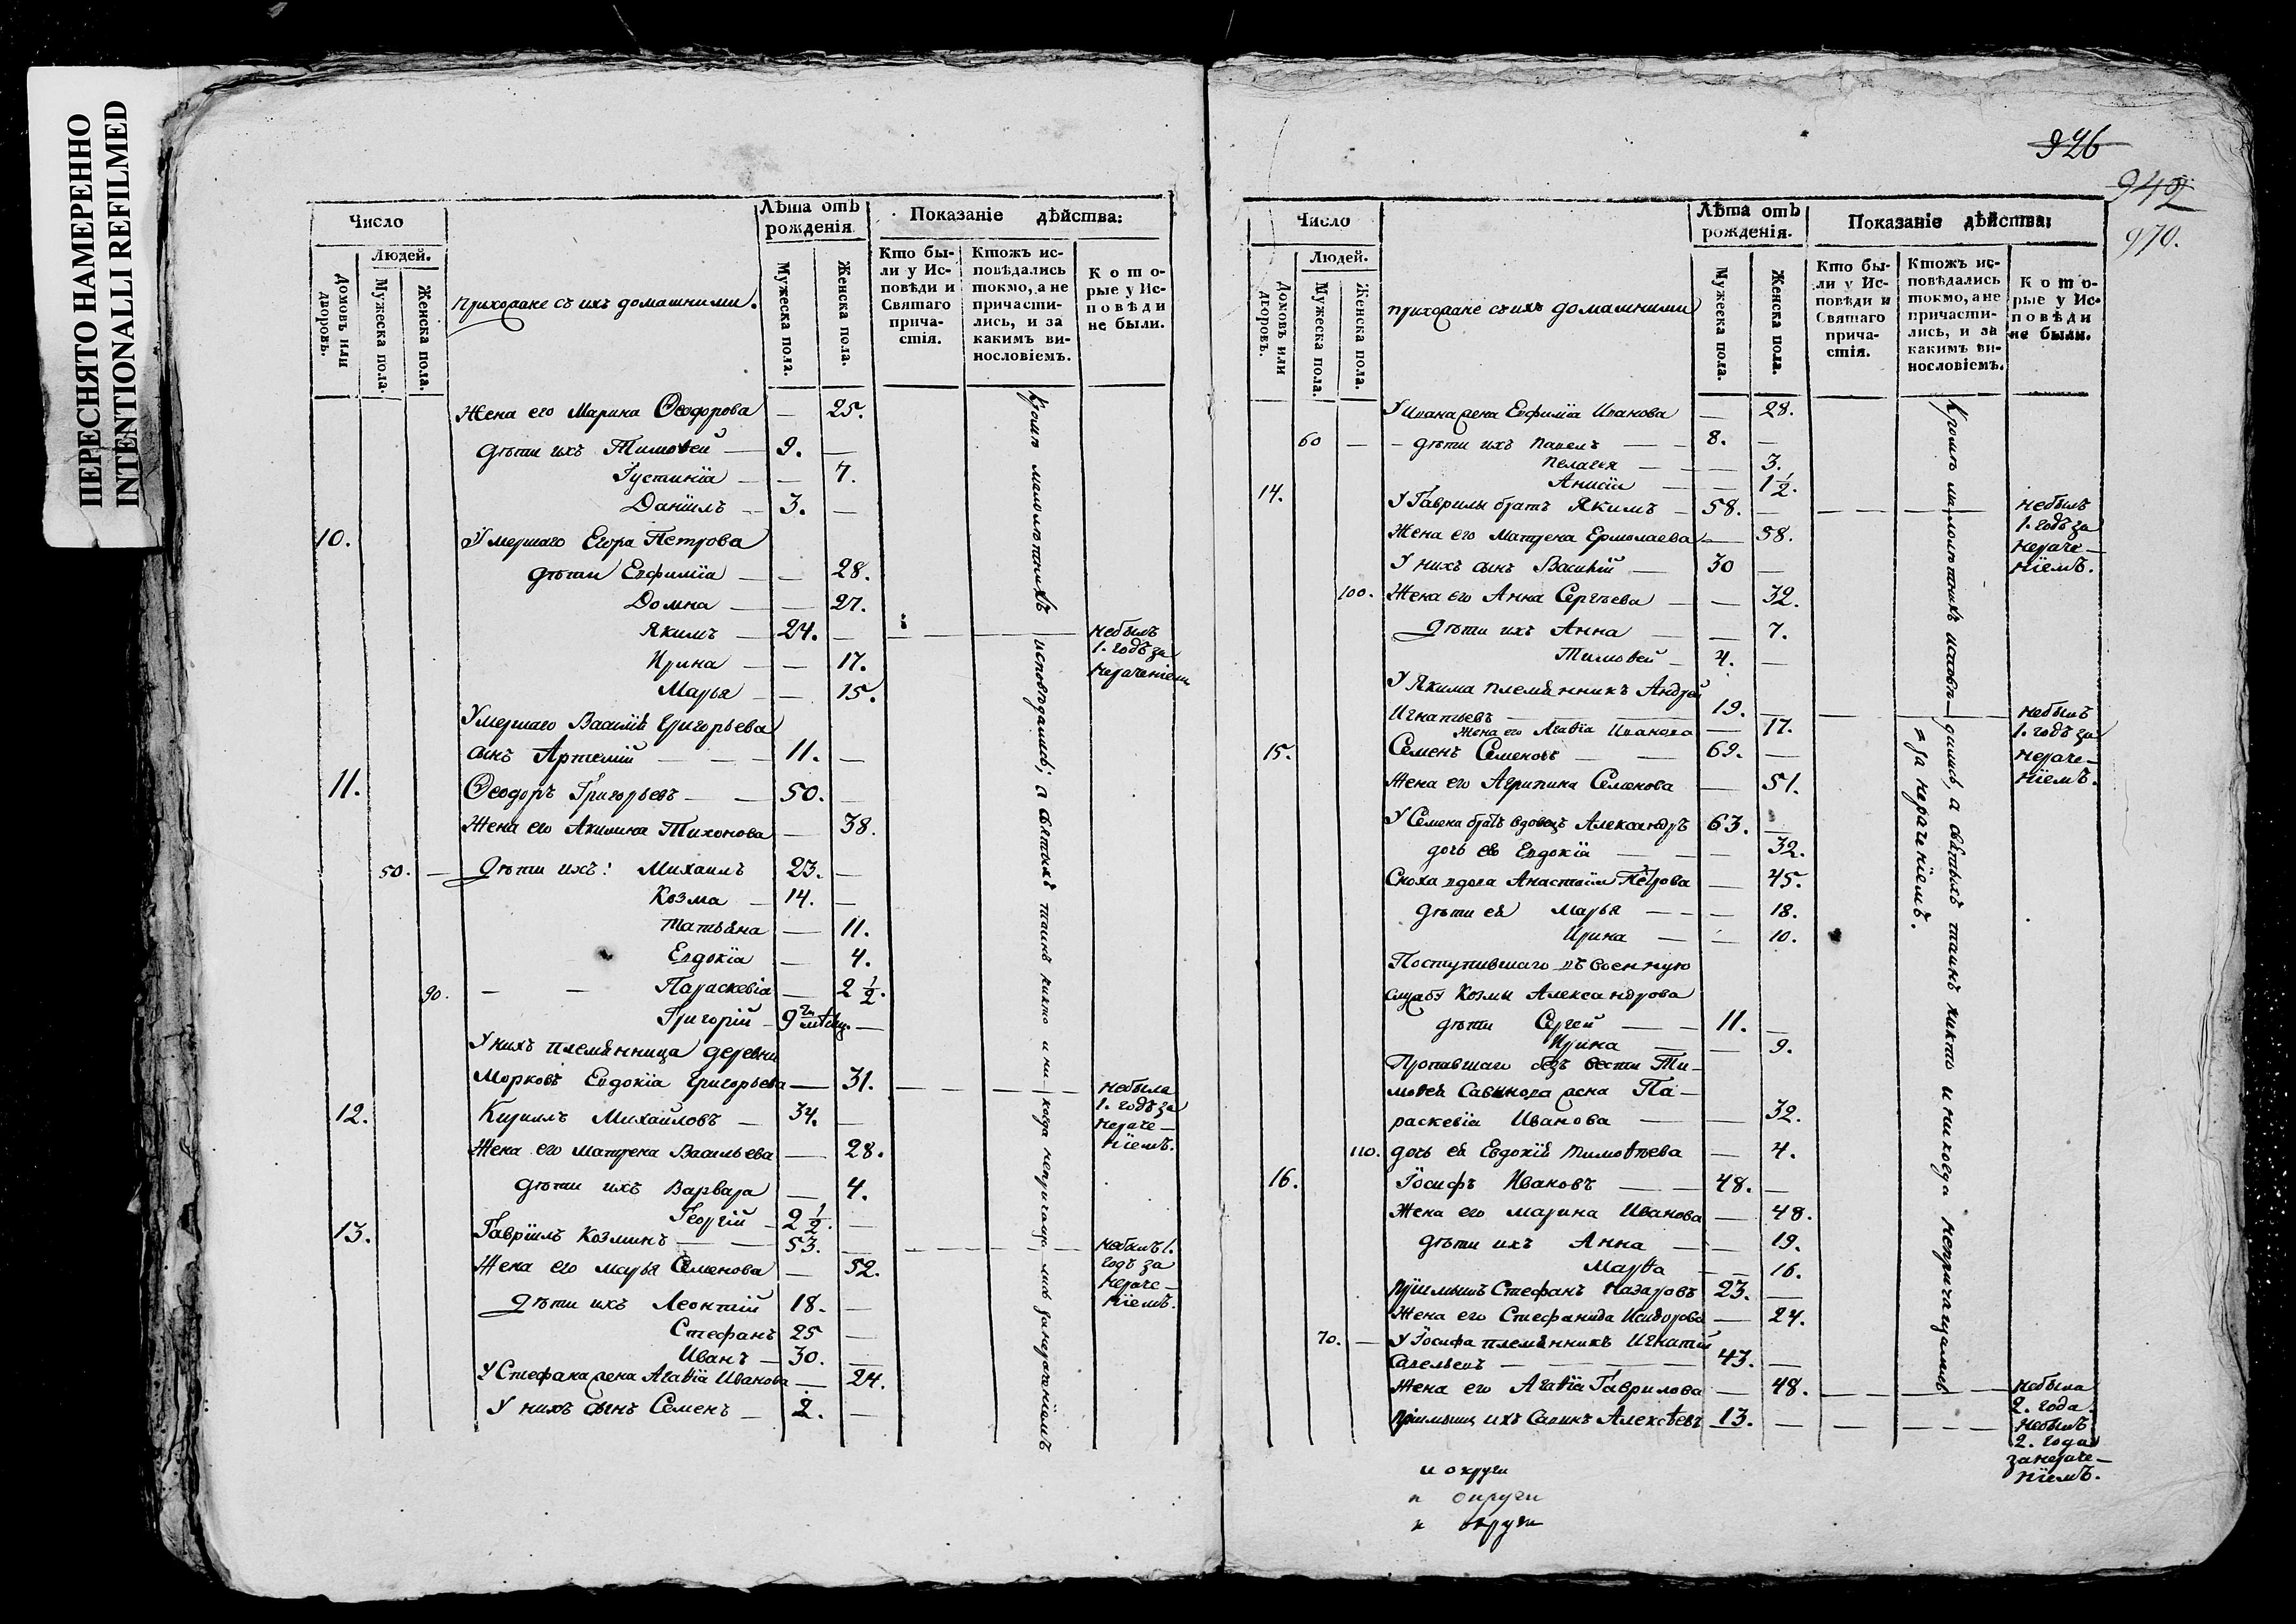 ПЕРЕСНЯТО НАМЕРЕННО
INTENTIONALLI REFILMED
Число
Людей.
Домовъ или дворовъ.
Мужеска пола.
Женска пола.
Прихожане съ ихъ домашними.
Лѣта отъ рожденія
Мужеска пола.
Женска пола.
Показаніе дѣйства:
Кто бы-
ли у Ис-
повѣди и
Святаго
прича-
стія.
Ктожъ ис-
повѣдались
токмо, а не
причасти-
лись, и за
какимъ ви-
нословіемъ.
Кото-
рые у Ис-
повѣди
не были.
Жена его Марина Ѳеодорова — 25.
дѣти ихъ Тимоѳей — 9. —
Іустинїа — — 7.
Данїилъ — 3. —
10. Умершаго Егора Петрова
дѣти Евфимїа — — 28.
Домна — — 27.
Якимъ — 24. — — — — небылъ
1. годъ за
нераченіемъ
Ирина — — 17.
Марья — — 15.
Умершаго Василїя Григорьева
сынъ Артемїй — — — 11. —
11. Ѳеодоръ Григорьевъ — — 50. —
Жена его Акилина Тихонова — 38.
50. — Дѣти ихъ: Михаилъ 23. —
Козма — 14. —
Татьяна — 11.
Евдокїа — 4.
90. — — Параскевїа — 2 1/2.
Григорїй — 9 —
У нихъ племянница деревни
Морковъ Евдокїа Григорьева — 31. — — — — небыла
1. годъ за
нераче-
нїемъ.
12. Кириллъ Михайловъ — 34. —
Жена его Матрена Васильева — 28.
дѣти ихъ Варвара — 4.
Георгїй — 2 1/2. —
13. Гаврїилъ Козминъ — — 53. — — — — небылъ 1.
годъ за
нераче-
нїемъ.
Жена его Марья Семенова — 52.
Дѣти ихъ Леонтїй 18. —
Стефанъ 25 —
Иванъ — 30. —
У Стефана жена Агаѳїа Иванова — 24.
У нихъ сынъ Семенъ — 2. —
Кромѣ малолѣтнихъ исповѣдались; а святыхъ таинъ никто и никогда непричащались за нераченїемъ
926
942
970.
Число
Людей.
Домовъ или дворовъ.
Мужеска пола.
Женска пола.
Прихожане съ ихъ домашними
Лѣта отъ рожденія.
Мужеска пола.
Женска пола.
Показаніе дѣйства:
Кто бы-
ли у Ис-
повѣди и
Святаго
прича-
стія.
Ктожъ ис-
повѣдались
токмо, а не
причасти-
лись, и за
какимъ ви-
нословіемъ.
Кото-
рые у Ис-
повѣди
не были.
У Ивана жена Евфимїа Иванова — 28.
60 — — дѣти ихъ Павелъ — — 8. —
Пелагея — — 3.
Анисїя — — 1 1/2.
14. У Гаврилы братъ Якимъ — 58. — — — — небылъ
1. годъ за
нераче-
нїемъ.
Жена его Матрена Ермолаева — 58.
У нихъ сынъ Василїй — 30 —
100. Жена его Анна Сергѣева — — 32.
Дѣти ихъ Анна — — 7.
Тимоѳей — 4. —
У Якима племянникъ Андрей
Игнатьевъ — 19. — — — — небылъ
1. годъ за
нераче-
нїемъ.
Жена его Агаѳїа Иванова — 17.
15. Семенъ Семеновъ — — 69. —
Жена его Агрипина Семенова — 51.
У Семена братъ вдовецъ Александръ 63. —
дочь его Евдокїа — — — 32.
Сноха вдова Анастасїя Петрова — 45.
дѣти ея Марья — — — 18.
Ирина — — 10.
Поступившаго въ военную
службу Козмы Александрова
дѣти Сергей — — 11. —
Ирина — — 9.
Пропавшаго безъ вести Ти-
моѳея Савинова жена Па-
раскевїа Иванова — — 32.
110. дочь ея Евдокїя Тимоѳѣева — 4.
16. Іосифъ Ивановъ — — 48. —
Жена его Марина Иванова — 48.
дѣти ихъ Анна — — 19.
Марѳа — 16.
Прїимышъ Стефанъ Назаровъ 23. —
Жена его Стефанида Исидорова — 24.
70. — У Іосифа племянникъ Игнатїй
Савельевъ — — — — 43. —
Жена его Агаѳїа Гаврилова — 48. — — — небыла
2. года.
Прїимышъ ихъ Савинъ Алексѣевъ 13. — — — — небылъ
2. года
за нераче-
нїемъ.
Кромѣ малолѣтнихъ исповѣдались, а святыхъ таинъ никто и никогда непричащались
за нераченїемъ.
и округи
округи
округи